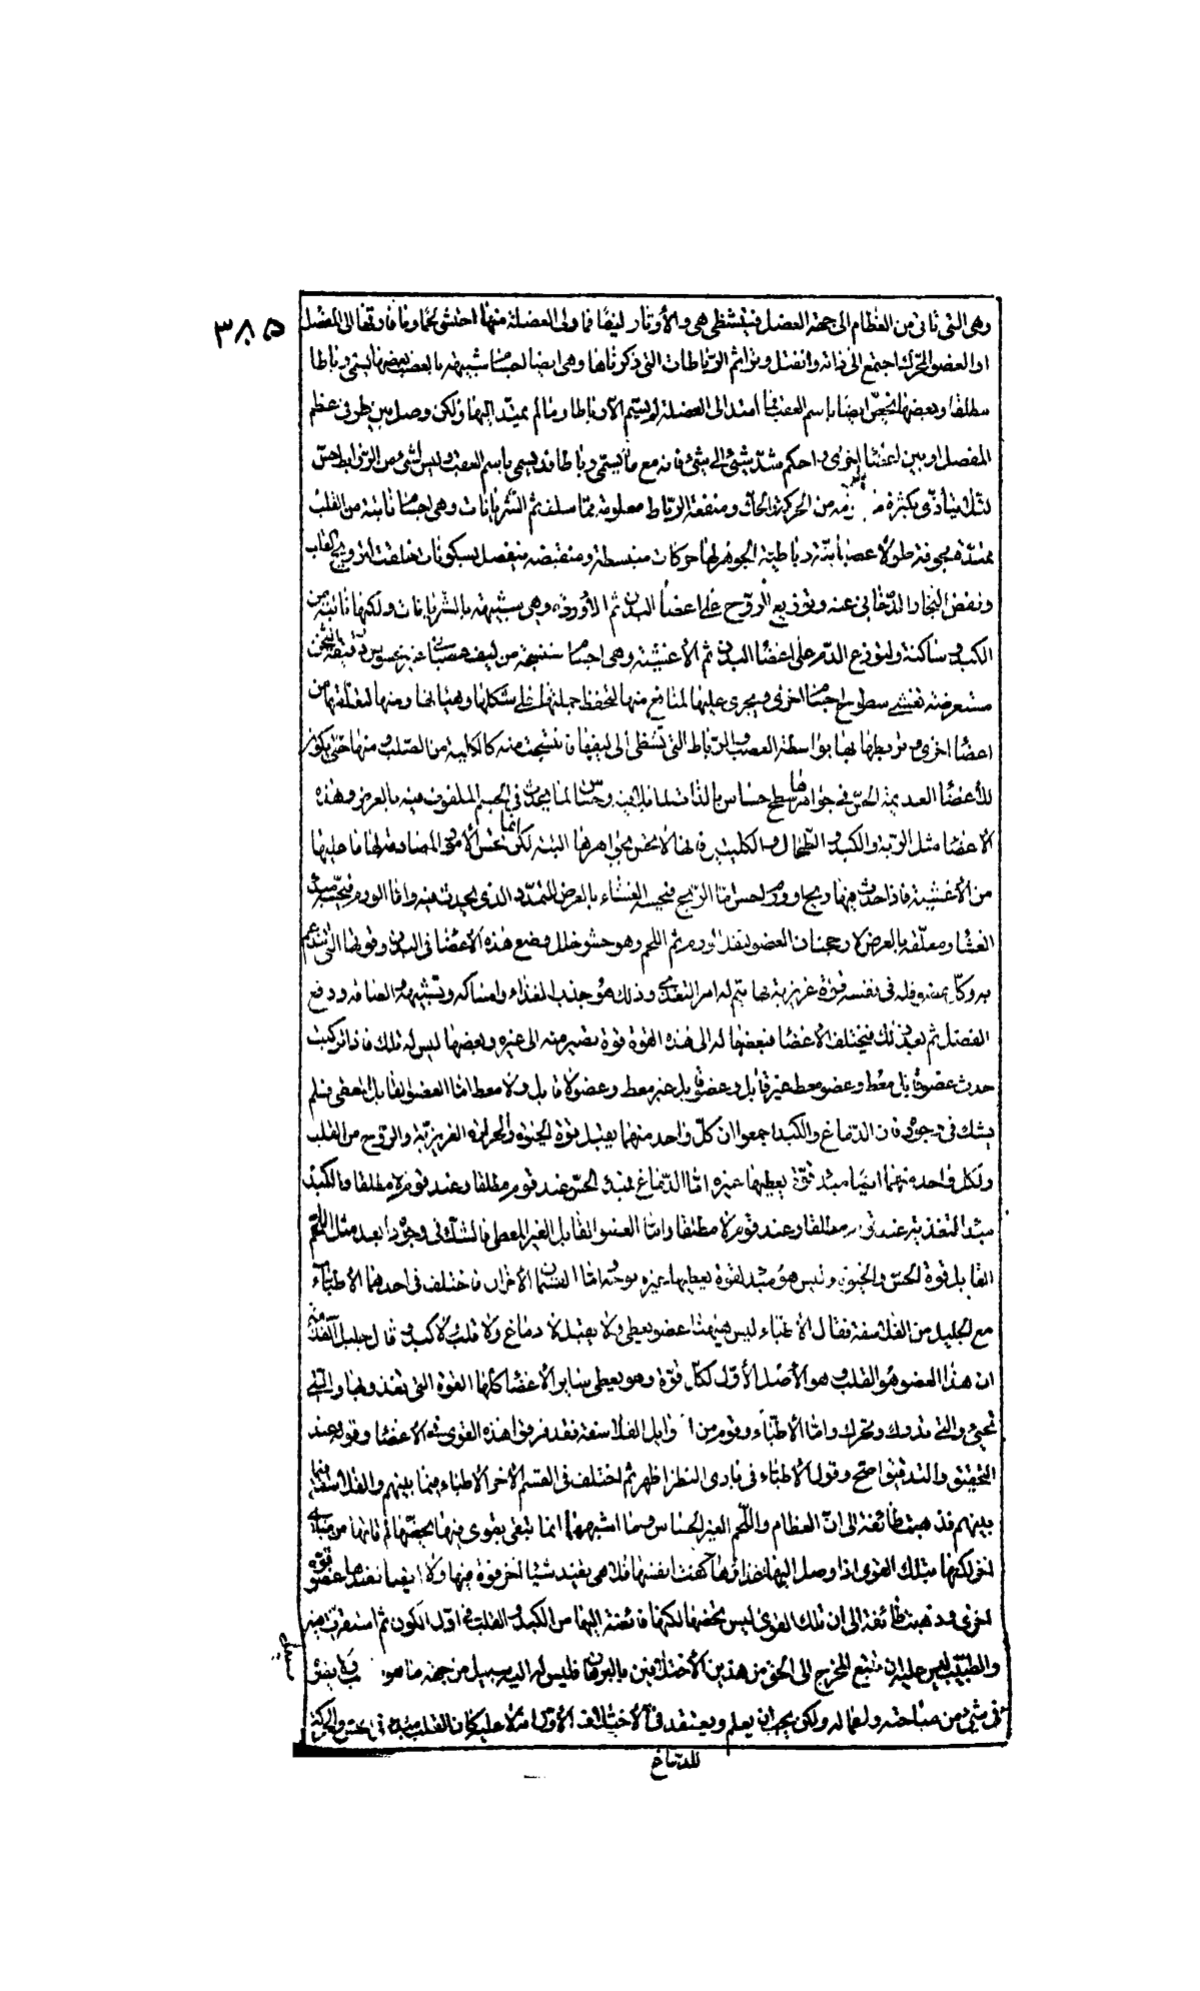 ٣٨٥
وهى التى تاتى من العظام الى جهة العضل فيتشظى هى والأوتار ليفا فما ولى العضلة منها احتشى لحما وما فارقها الى المفصل
او العضو المحرك اجتمع الى ذاته وانفتل وترا ثم الرباطات التى ذكرناها وهى ايضا اجسام شبيهة بالعصب بعضها يسمى رباطا
مطلقا وبعضها يخص ايضا باسم العقب فما امتد الى العضلة لم يسم الا رباطا وما لم يمتد اليها ولكن وصل بين طرفى عظم
المفصل او بين اعضا اخرى واحكم شد شئ الى شئ فانه مع ما يسمى رباطا قد يسمى باسم العقب وليس لشئ من الروابط حس
لئلا يتاذى بكثرة ما يلزمه من الحركة والحك ومنفعة الرباط معلومة مما سلف ثم الشريانات وهى اجسام نابتة من القلب
ممتدة مجوفة طولا عصبانية رباطية الجوهر لها حركات منبسطة ومنقبضة ينفصل بسكونات خلقت لترويح القلب
ونفض البخار الدخانى عنه وتوزيع الروح على اعضا البدن ثم الأوردة وهى شبيهة بالشريانات ولكنها نابتة من
الكبد وساكنة ولتوزع الدم على اعضا البدن ثم الأغشية وهى اجسام منتسجة من ليف عصبانى غير محسوس رقيقة الثخن
مستعرضة تغشى سطوح اجسام اخرى ويجرى عليها لمنافع منها لتحفظ جملتها على شكلها وهيئاتها ومنها لتعلقها من
اعضا اخرى وتربطها بها بواسطة العصب والرباط التى تشظى الى ليفها فانتسجت منه كالكلية من الصلب ومنها حتى يكون
للأعضا العديمة الحس فى جواهرها سطح حساس بالذات لما يلاقيه وحساس لما يحدث فى الجسم الملفوف فيه بالعرض وهذه
الاعضا مثل الرية والكبد والطحال والكليتين فانها لا تحس بجواهرها البتة لكن انما تحس الأمور المصادمة لها بما عليها
من الأغشية فاذا حدث فيها ريح او ورم احس اما الريح فيحسه الغشاء بالعرض للتمدد الذى يحدث فيه واما الورم فيحسه مبدء
الغشا ومعلقه بالعرض لارجحنان العضو لثقل الورم ثم اللحم وهو حشو خلل وضع هذه الاعضا فى البدن وقوتها التى تندعم
به وكل عضو فله فى نفسه قوة غريزية بها يتم له امر التغذى وذلك هو جذب الغذاء وامساكه وتشبيهه والصاقه ودفع
الفضل ثم بعد ذلك فيختلف الأعضا فبعضها له الى هذه القوة قوة تصير منه الى غيره وبعضها ليس له تلك فاذا تركبت
حدث عضو قابل معط وعضو معط غير قابل وعضو قابل غير معط وعضو لا قابل ولا معط اما العضو القابل المعطى فلم
يشك فى وجوده فان الدماغ والكبد اجمعوا ان كل واحد منهما يقبل قوة الحيوة والحرارة الغريزية والروح من القلب
ولكل واحد منهما ايضا مبدء قوة يعطيها غيره اما الدماغ فمبدء الحس عند قوم مطلقا وعند قوم لا مطلقا والكبد
مبدء التغذية عند قوم مطلقا وعند قوم لا مطلقا واما العضو القابل الغير المعطى فالشك فى وجوده ابعد مثل اللحم
القابل قوة الحس والحيوة وليس هو مبدء لقوة يعطيها غيره بوجه اما القسمان الأخران فاختلف فى احدهما الأطباء
مع الجليل من الفلاسفة فقال الأطباء ليس هيهنا عضو يعطى ولا يقبل لا دماغ ولا قلب ولا كبد وقال جليل الفلاسفة
ان هذا العضو هو القلب وهو الأصل الأول لكل قوة وهو يعطى ساير الأعضا كلها القوة التى تغذو بها والتى
تحيى والتى تدرك وتحرك واما الأطباء وقوم من اوايل الفلاسفة فقد فرقوا هذه القوى فى الأعضا وقوله عند
التحقيق والتدقيق اصح وقول الأطباء فى بادى النظر اظهر ثم اختلف فى القسم الأخر الأطباء فيما بينهم والفلاسفة فيما
بينهم فذهبت طائفة الى ان العظام واللحم الغير الحساس وما اشبههما انما تبقى بقوى فيها يخصها لم تاتها من مباد
اخر لكنها بتلك القوى اذا وصل اليها غذاؤها كفت نفسها فلا هى يفيد شيئا اخر قوة فيها ولا ايضا يفيدها عضو قوة
اخرى وذهبت طائفة الى ان تلك القوى ليس يخصها لكنها فائضة اليها من الكبد والقلب فى اول الكون ثم استقرت فيه
والطبيب ليس عليه ان يتتبع المخرج الى الحق من هذين الأختلافين بالبرهان فليس له اليه سبيل من جهة ما هو طبيب ولا يضره
فى شئ من مباحثه واعماله ولكن يجب ان يعلم ويعتقد فى الأختلاف الأول انه لا عليه كان القلب مبدء فى الحس والحركة
للدماغ